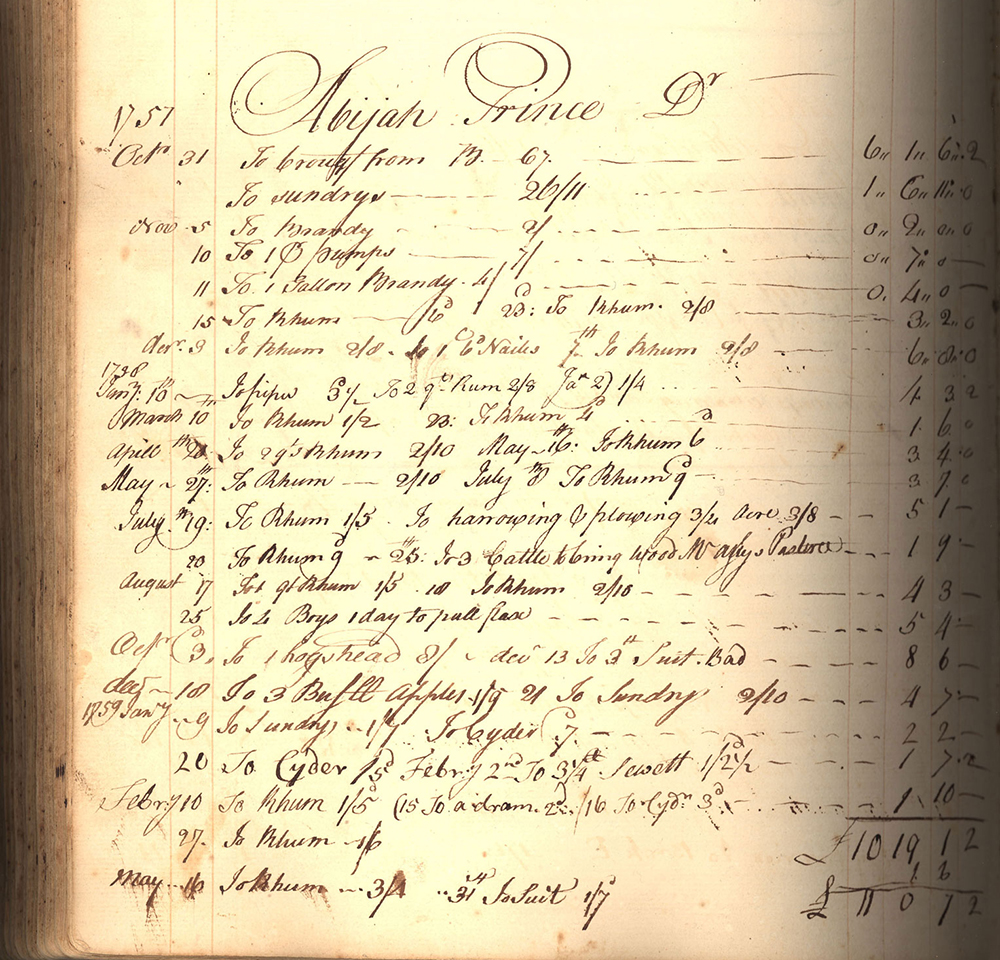 Abijah Prince Dr
1757
Octr 31 To brought from B. 67. 6 1 6 2
To sundrys 26/11 1 6 11 0
Nov 5 To Brandy 2/ 0 2 0 0
10 To 1 P pumps 7/ 0 7 0
11 To 1 Gallon Brandy 4/ 0 4 0
15 To Rhum 6d 23: To Rhum 2/8 3 2 0
decr 3 To Rhum 2/8 To 1 C Nails 7th To Rhum 2/8 6 8 0
1758
Jany 10th To pipes 3 To 2 qts Rum 2/8 1/4 4 3 2
March 10th To Rhum 1/2 23: To Rhum 4d 1 6 0
Aprill 20th To 2 qts Rhum 2/10 May 16th: To Rhum 6d 3 4 0
May 27th: To Rhum 2/10 July 8th To Rhum 9d 3 7 0
July 19th: To Rhum 1/5 To harrowing & plowing 3/4 Acre 3/8 5 1
20 To Rhum 9d 25th: To 3 Cattle to bring Wood Mr Pasture 1 9
August 17 To 1 qt Rhum 1/5 18 To Rhum 2/10 4 3
25 To 4 Boys 1 day to pull flax 5 4
Octr 3d To 1 hogshead 8/ decr 13 To 3d Suit Bad 8 6
decr 18 To 3 Bushll Apples 1/9 21 To Sundry 2/10 4 7
1759 Jany 9 To Sundry 1/7 To Cyder 7d 2 2
20 To Cyder 5d Febry 2nd To 3 1/4 lb Sewett 1/2 1/2d 1 7 2
Febry 10 To Rhum 1/5d (15 To a dram 2d: /16 To Cydr 3d 1 10
27 To Rhum 1/6 £10 19 1 2
May 16 To Rhum 3/4 31st To Suit 1/7 1 6
£ 11 0 7 2